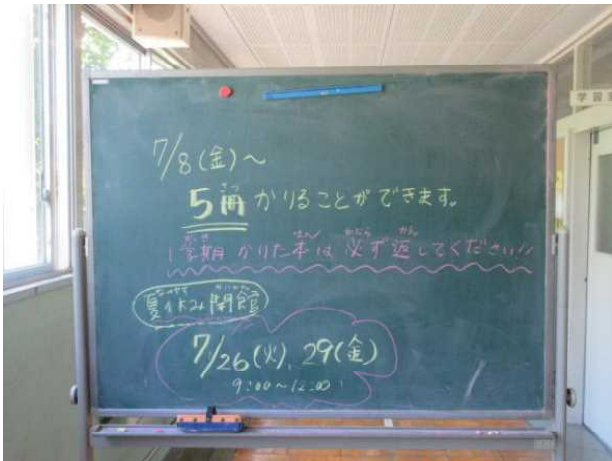 7/8(金)~
5冊かりることができます。
1学期かりた本は必ず返してください!!
夏休み開館
7/26(火)、29(金)
9:00~12:00
学習室